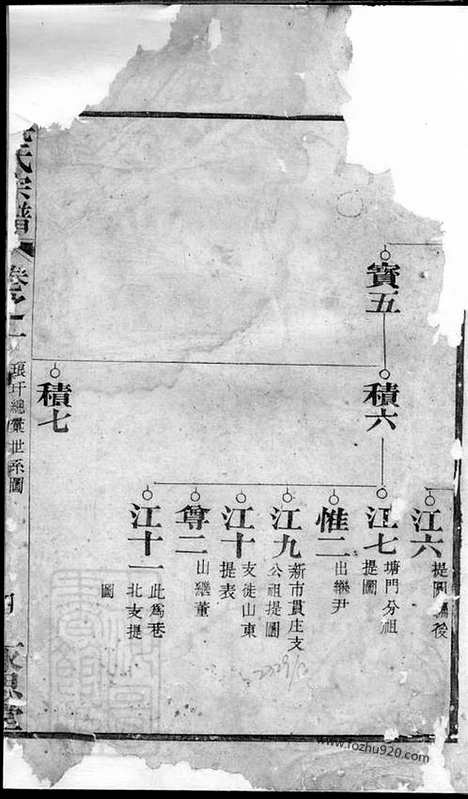 寳五
積六
積七
江六
提圖
後
江七
塘門分祖
提圖
惟二
出繼尹
江九
新市貫庄支
公祖提圖
江十
支徙山東
提表
尊二
出繼董
江十一
此為巷
北支提
圖
氏宗譜
卷之一
琅玕總葉世系圖
2329/2
www.rozhu920.com